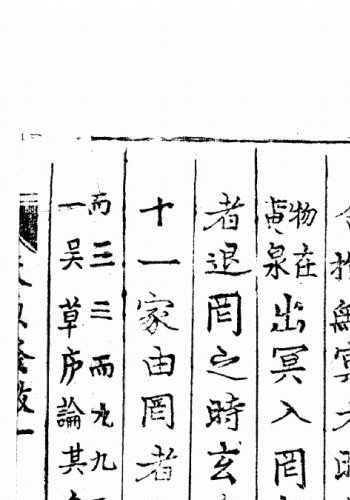 無冥
物在
黃泉
出冥入罔
者退罔之時玄
十一家由罔者
而三三而九九
一吳草序論其